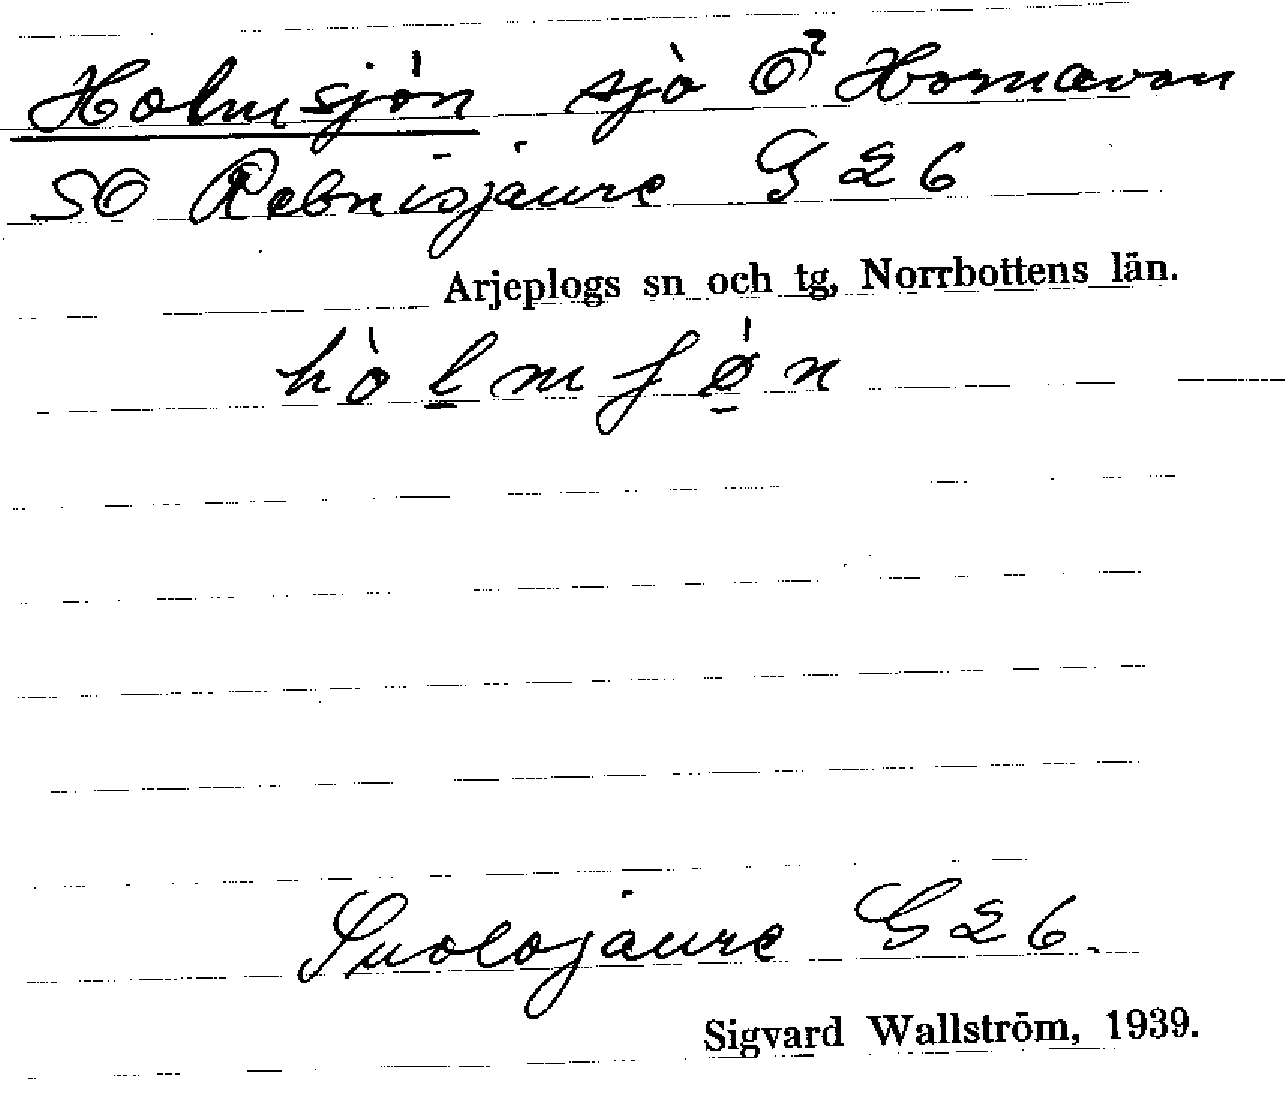 Holmsjön sjö Ö² Hornavan
SO Rebnisjaure G 26
Arjeplogs sn och tg, Norrbottens län.
hòl̲mʃǿ̲n
Suolojaure G 26.
Sigvard Wallström, 1939.